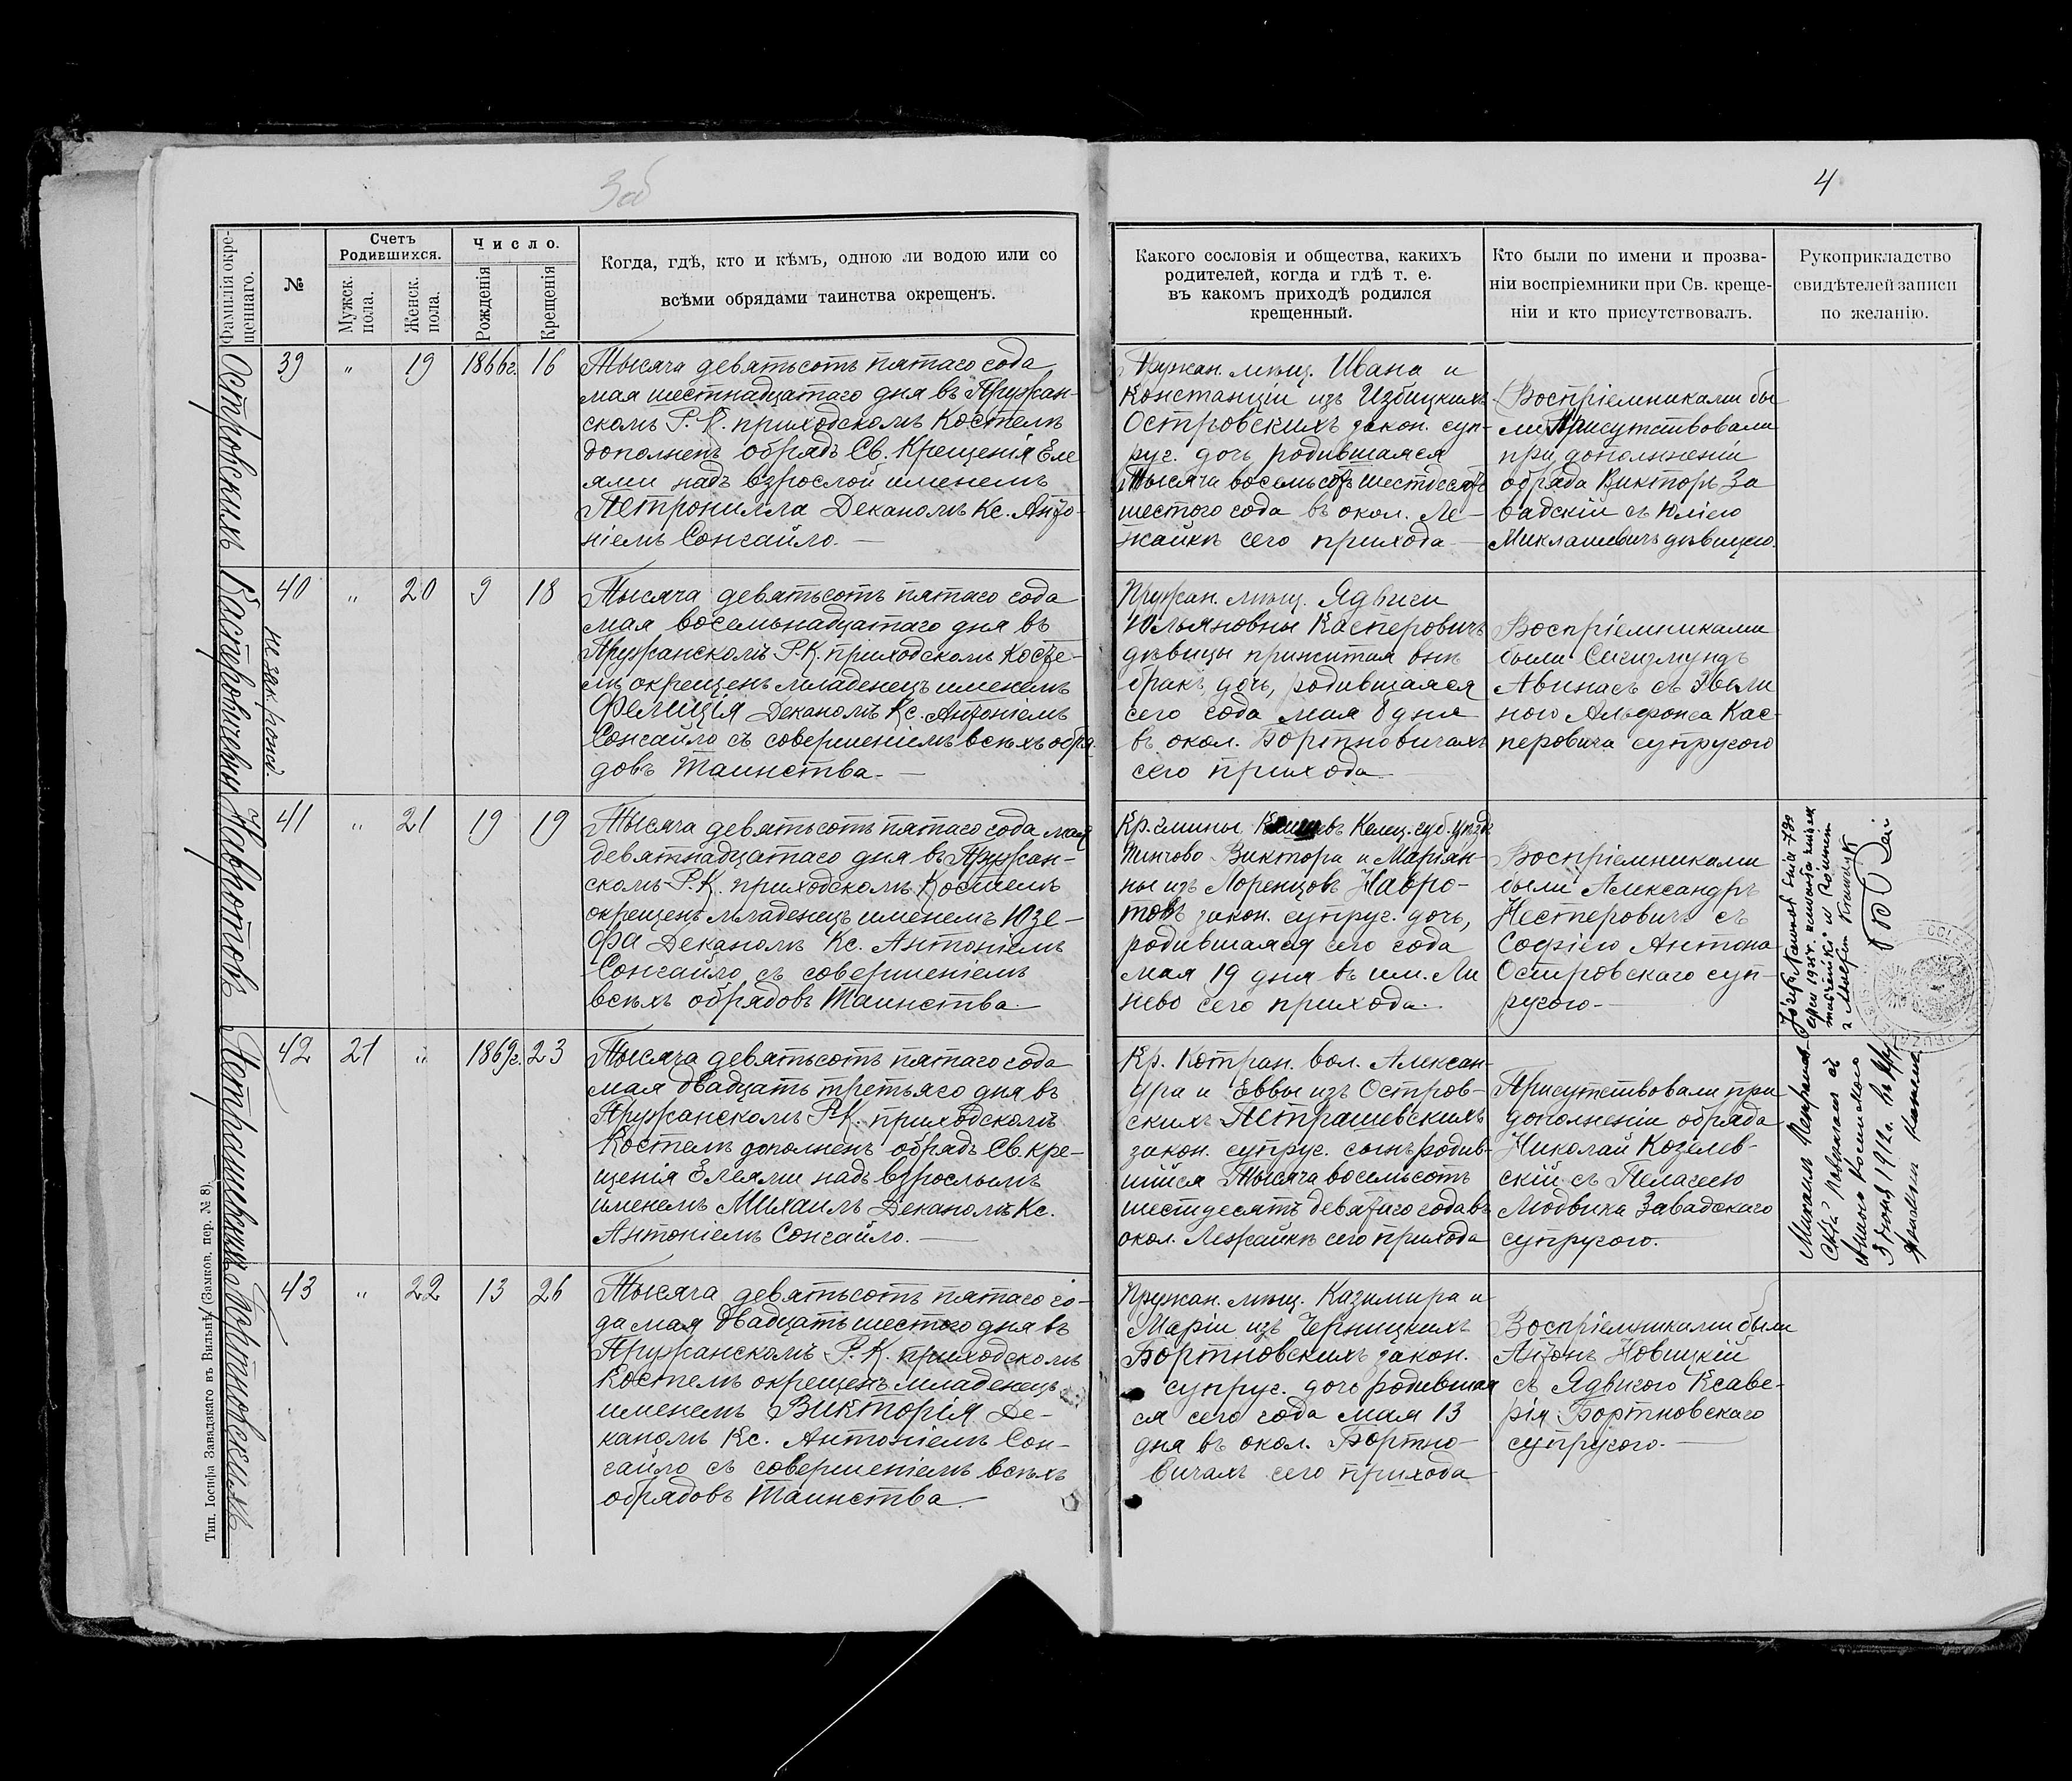 3об
4
Фамилія окре-
щеннаго.
№
Счетъ
Родившихся.
Мужск.
пола.
Женск.
пола.
Число.
Рожденія
Крещенія
Когда, гдѣ, кто и кѣмъ, одною ли водою или со
всѣми обрядами таинства окрещенъ.
Какого сословія и общества, какихъ
родителей, когда и гдѣ т. е.
въ какомъ приходѣ родился
крещенный.
Кто были по имени и прозва-
ніи воспріемники при Св. креще-
ніи и кто присутствовалъ.
Рукоприкладство
свидѣтелей записи
по желанію.
Островскихъ
39 " 19 1866г. 16
Тысяча девятьсотъ пятаго года
мая шестнадцатаго дня въ Пружан-
скомъ Р. К. приходскомъ Костелѣ
дополненъ обрядъ Св. Крещенія Еле
ями надъ взрослой именемъ
Петронилла Деканомъ Кс. Анто-
ніемъ Сонгайло.—
Пружан. мѣщ. Ивана и
Констанціи изъ Избицкихъ
Островскихъ закон. суп-
руг. дочь родившаяся
Тысяча восемьсотъ шестдесятъ
шестого года въ окол. Ле-
жайкѣ сего прихода —
Воспріемниками бы
ли Присутствовали
при дополненіи
обряда Викторъ За
вадскій съ Юліею
Миклашевичъ дѣвицею.
Касперовичевны
40 " 20 9 18
не зак. рожд.
Тысяча девятьсотъ пятаго года
мая восемьнадцатаго дня въ
Пружанскомъ Р.К. приходскомъ Косте-
лѣ окрещенъ младенецъ именемъ
Фелиція Деканомъ Кс. Антоніемъ
Сонгайло съ совершеніемъ всѣхъ обря
довъ Таинства.—
Пружан. мѣщ. Ядвиги
Юльяновны Касперовичъ
дѣвицы прижитая внѣ
брака дочь, родившаяся
сего года мая 8 дня
въ окол. Бортновичахъ
сего прихода.—
Воспріемниками
были Сигизмундъ
Авинасъ съ Эвели
ною Альфонса Кас-
перовича супругою
Навротовъ
41 " 21 19 19
Тысяча девятьсотъ пятаго года мая
девятнадцатаго дня въ Пружан-
скомъ Р.К. приходскомъ Костелѣ
окрещенъ младенецъ именемъ Юзе-
фа Деканомъ Кс. Антоніемъ
Сонгайло съ совершеніемъ
всѣхъ обрядовъ Таинства.—
Кр. гмины Келец. губ. уѣзда
Пинчово Виктора и Маріан-
ны изъ Лоренцовъ Навро-
товъ закон. супруг. дочь,
родившаяся сего года
мая 19 дня въ им. Ли
нево сего прихода.—
Воспріемниками
были Александръ
Нестеровичъ съ
Софіею Антона
Островскаго суп-
ругою.—
Петрашевскихъ
42 21 " 1869г. 23
Тысяча девятьсотъ пятаго года
мая двадцать третьяго дня въ
Пружанскомъ Р.К. приходскомъ
Костелѣ дополненъ обрядъ Св. кре-
щенія Елеями надъ взрослымъ
именемъ Михаилъ Деканомъ Кс.
Антоніемъ Сонгайло.—
Кр. Котран. вол. Алексан-
дра и Еввы изъ Остров-
скихъ Петрашевскихъ
закон. супруг. сынъ родив-
шійся Тысяча восемьсотъ
шестдесятъ девятаго года въ
окол. Лежайкѣ сего прихода
Присутствовали при
дополненіи обряда
Николай Козелев-
скій съ Пелагею
Людвика Завадскаго
супругою.—
Бортновскихъ
43 " 22 13 26
Тысяча девятьсотъ пятаго го-
да мая двадцать шестого дня въ
Пружанскомъ Р. К. приходскомъ
Костелѣ окрещенъ младенецъ
именемъ Викторія Де-
каномъ Кс. Антоніемъ Сон-
гайло съ совершеніемъ всѣхъ
обрядовъ Таинства.—
Пружан. мѣщ. Казимира и
Маріи изъ Черницкихъ
Бортновскихъ закон.
супруг. дочь родившая
ся сего года мая 13
дня въ окол. Бортно-
вичахъ сего прихода
Воспріемниками были
Антонъ Новицкій
съ Ядвигою Ксаве-
рія Бортновскаго
супругою.—
Тип. Іосифа Завадзкаго въ Вильнѣ (Замков. пер. № 8).